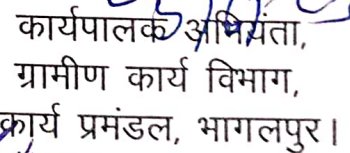 कार्यपालक अभियंता,
ग्रामीण कार्य विभाग,
कार्य प्रमंडल, भागलपुर।